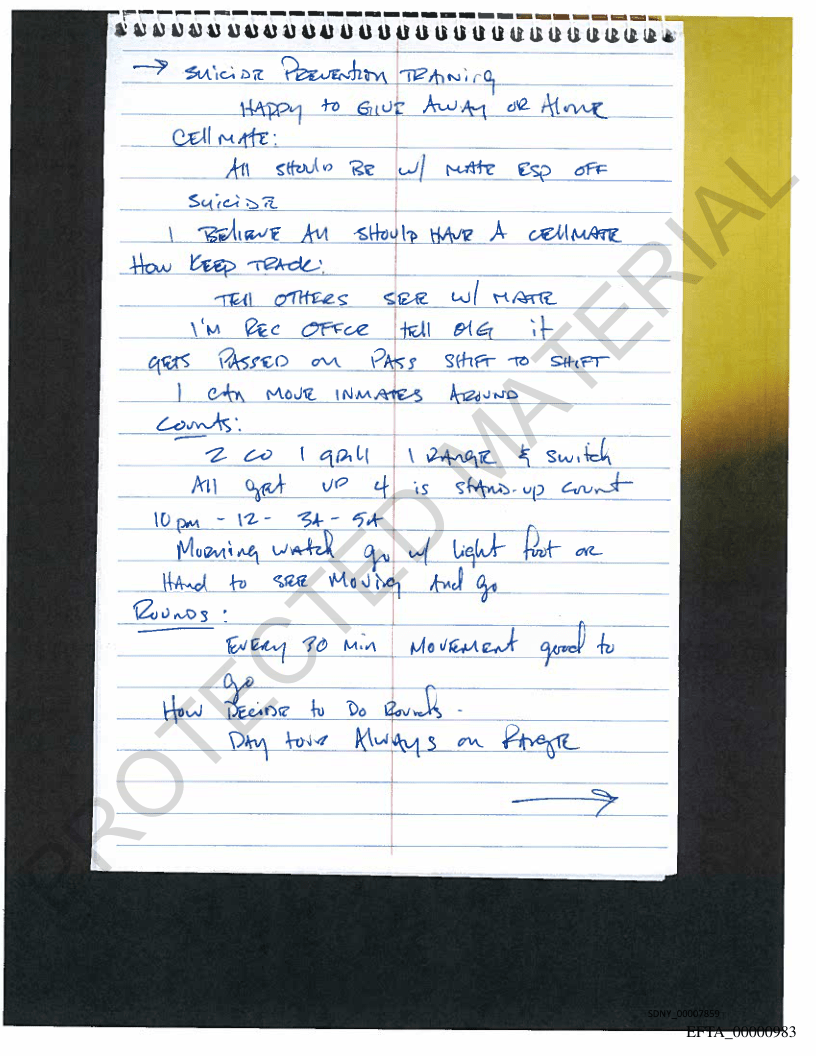 → SUICIDE PREVENTION TRAINING
HAPPY to GIVE AWAY OR AlONE
CEll MATE:
All SHOULD BE w/ MATE ESP OFF
SUICIDE
I BELIEVE All SHOULD HAVE A CEllMATE
How KEEP TRACK:
TEll OTHERS SEE w/ MATE
I'M REC OFFCE tell it
GETS PASSED on PASS SHIFT TO SHIFT
I CAN MOVE INMATES AROUND
Counts:
2 CO 1 GRill 1 RANGE & Switch
All get UP 4 is STAND-UP Count
10 pm - 12 - 3A - 5A
Morning Watch go w/ light foot OR
HAnd to SEE Moving And go
ROUNDS:
EVERY 30 Min MOVEMENT good to
go
How DECIDE to Do Rounds -
DAY tour AlWAYS on RANGE
→
PROTECTED MATERIAL
SDNY_00007859
EFTA_00000983